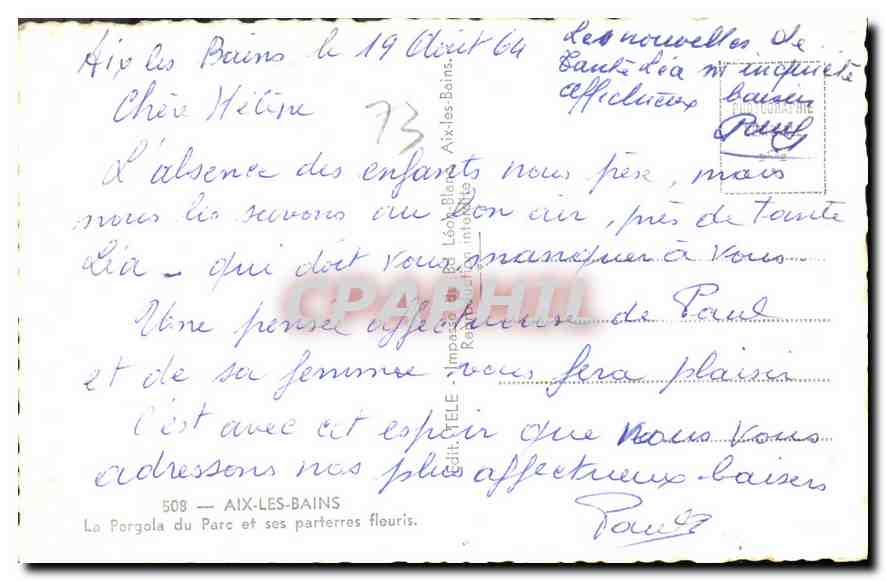 Aix les Bains le 19 Août 64
Chère Hélène
73
L'absence des enfants nous pèse, mais
nous les savons au bon air, près de Tante
Léa - qui doit vous manquer à vous.
Une pensée affectueuse de Paul
et de sa femme vous fera plaisir
C'est avec cet espoir que nous vous
adressons nos plus affectueux baisers
Les nouvelles de
Tante Léa m'inquiète
affectueux baisers
Edit. TELE - Impasse du Bd Léon-Blanc - Aix-les-Bains.
Reproduction interdite
CPAPHIL
508 — AIX-LES-BAINS
La Pergola du Parc et ses parterres fleuris.